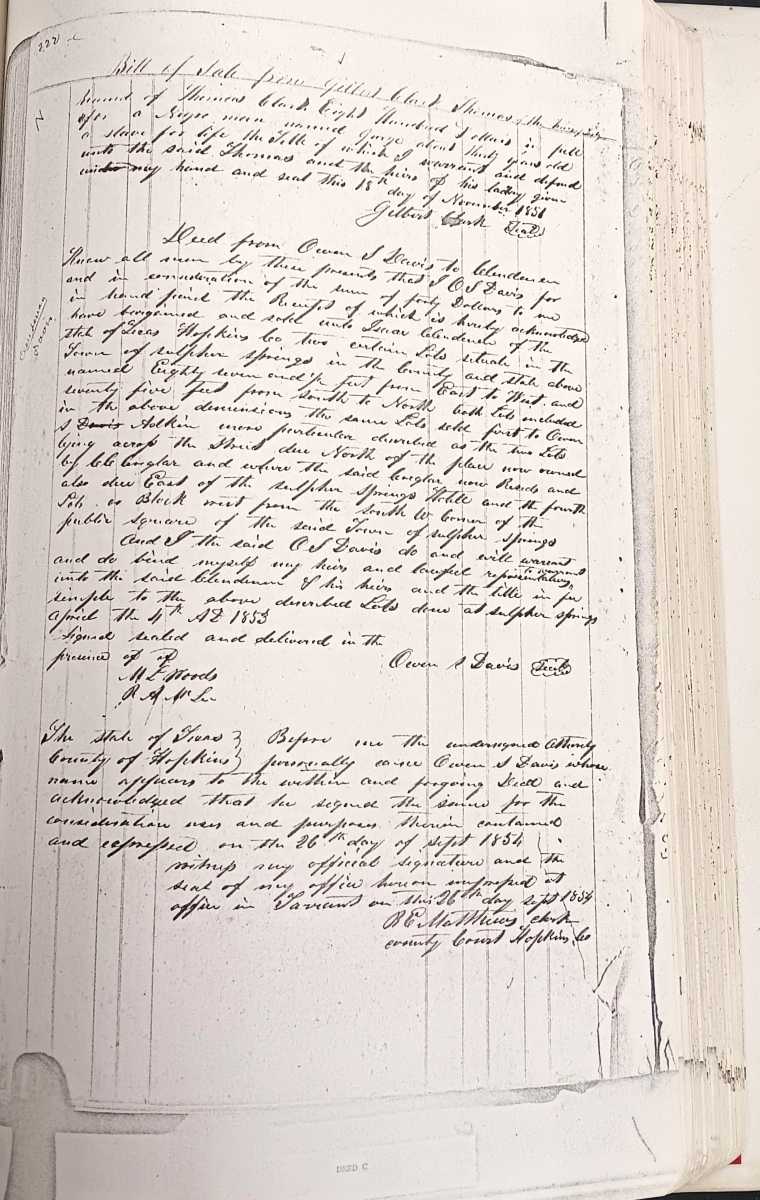 222
Bill of Sale from Gilbert Clark Thomas of the
hand of Thomas Clark Eight Hundred Dollars in full
for a Negro man named Jorge about thirty years old
a slave for life the Title of which I warrant and defend
unto the said Thomas and the heirs of his body given
under my hand and seal this 18th day of November 1851
Gilbert Clark Seal
Deed from Owen S Davis to Clendenen
Know all men by these presents that I O S Davis for
and in consideration of the sum of forty Dollars to me
in hand paid the Receipt of which is hereby acknowledged
have bargained and sold unto Isaac Clendenen of the
state of Texas Hopkins Co two certain Lots situate in the
Town of sulpher springs in the County and state above
named Eighty seven and ½ feet from East to West and
seventy five feet from south to North both Lots included
in the above demensions the same Lots sold first to Owen
S Davis Adkin more particular described as the two Lots
lying across the Street due North of the place now owned
by and where the said now Resids and
also due East of the sulpher springs Hotel and the fourth
Lots or Block west from the south W Corner of the
public square of the said Town of sulpher springs
And I the said O S Davis do and will warrant
and do bind myself my heirs and lawful representatives, to warrant
unto the said Clendenen & his heirs and the title in fee
simple to the above described Lots done at sulpher springs
April the 4th AD 1853
Signed sealed and delivered in the
presence of of
Owen S Davis Seal
M L Woods
R A McLee
The state of Texas } Before me the undersigned Athority
County of Hopkins } personally came Owen S Davis whose
name appears to the within and forgoing Deed and
acknowledged that he signed the same for the
consideration uses and purposes therein contained
and expressed on the 26th day of sept 1854
witness my official signature and the
seal of my office hereon impressed at
office in Tarrant on this 26th day sept 1854
R E Matthews clerk
county Court Hopkins Co
DEED C